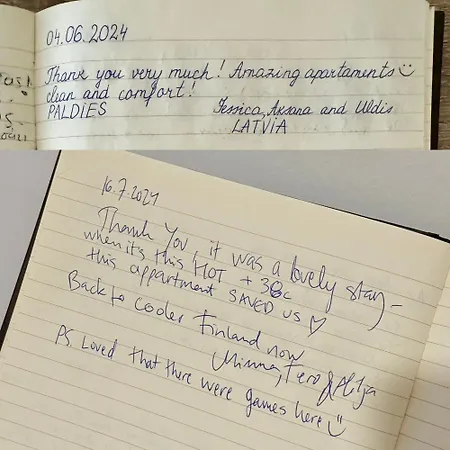 04.06.2024
Thank you very much! Amazing apartaments ☺
clean and comfort!
PALDIES Jessica, Aksana and Uldis
LATVIA
16.7.2024
Thank you, it was a lovely stay –
when it's this HOT + 38c
this appartment SAVED US ♡
Back to cooler Finland now
Minna, Tero &
PS. Loved that there were games here ☺